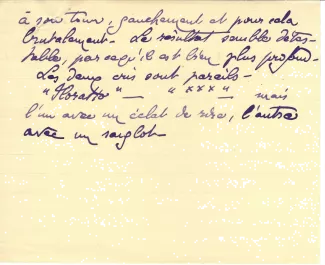 à son tour, gauchement et pour cela
brutalement - Le résultat semble détes-
table, parsequ'il est bien plus profond -
Les deux cris sont pareils -
"Horatio" — "xxx" — mais
l'un avec un éclat de rire, l'autre
avec un sanglot